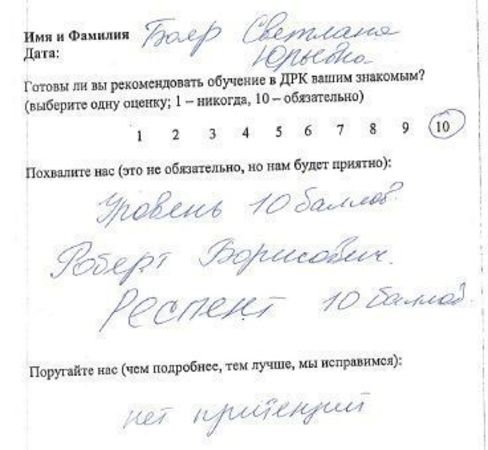 Имя и Фамилия Бояр Светлана
Дата: Юрьевна
Готовы ли вы рекомендовать обучение в ДРК вашим знакомым?
(выберите одну оценку; 1 – никогда, 10 – обязательно)
1 2 3 4 5 6 7 8 9 10
Похвалите нас (это не обязательно, но нам будет приятно):
Уровень 10 баллов.
Роберт Борисович.
Респект 10 баллов.
Поругайте нас (чем подробнее, тем лучше, мы исправимся):
нет притензий